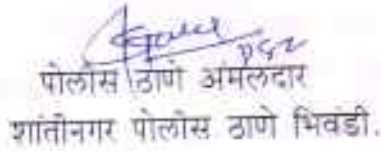 पोलीस ठाणे अंमलदार
शांतीनगर पोलीस ठाणे भिवंडी.